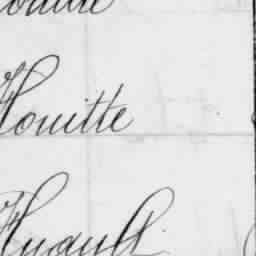 Houitte
Huault